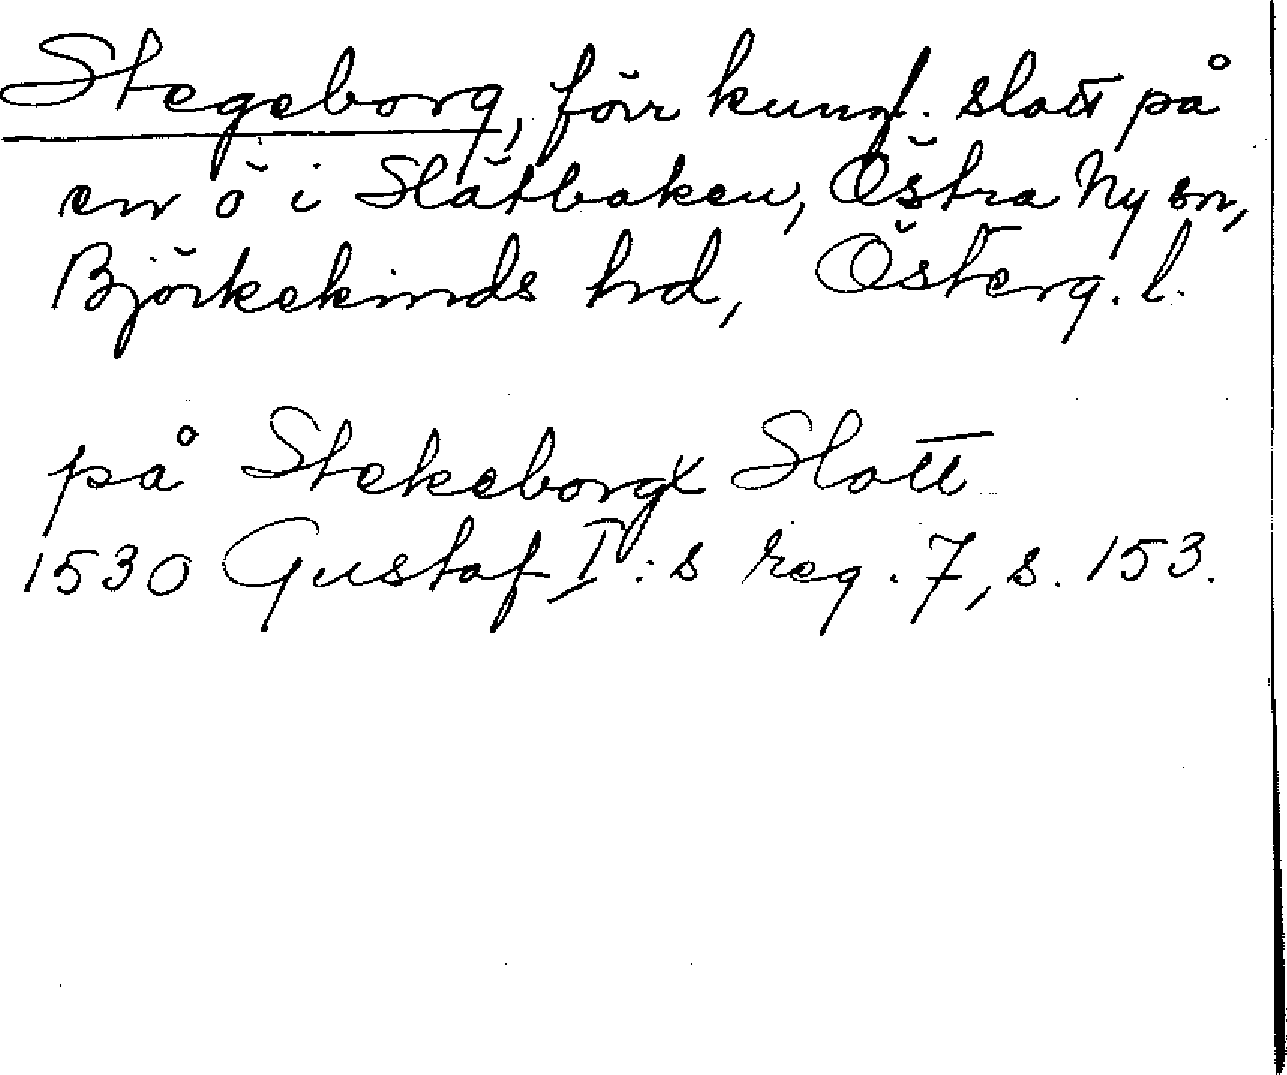 Stegeborg, förr kungl. slott på
en ö i Slätbaken, Östra Ny sn,
Björkekinds hrd, Österg. l.
på Stekeborgx Slott
1530 Gustaf I:s reg. 7, s. 153.